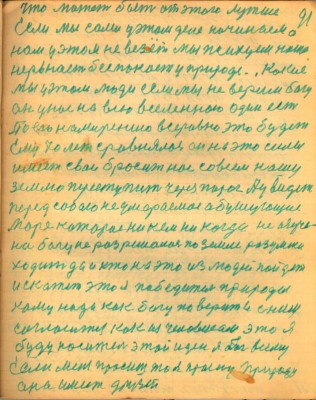 91
что может быть от этого лутше
Если мы сами у этом деле начинаем
нам у этом не везёт мы психуем наша
нервная беспокоит у природе. Какие
мы у этом люди если мы не верим богу
он у нас на всю вселенною один ест
это будет
Ему 70 лет сравнялося он на это силы
имеет свои бросит нас совсем нашу
землю преступит через порог А увидет
перед собою неумараемое
море каторае никем ни когда не
на богу не разрешалося по земле разутки
ходит да и кто на это из людей пойдет
и скажет это я победител природы
кому нада как богу поверит и с ним
согласится как из человеком это я
буду носител этой идеи я бы всему
Если меня просит то я прошу природу
она имеет друзей